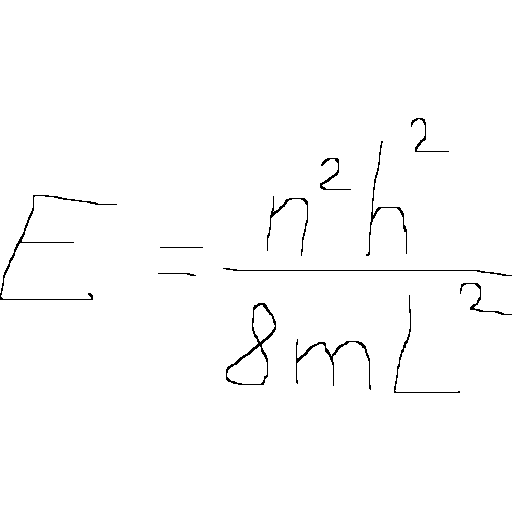 E = \frac{n^2 h^2}{8mL^2}